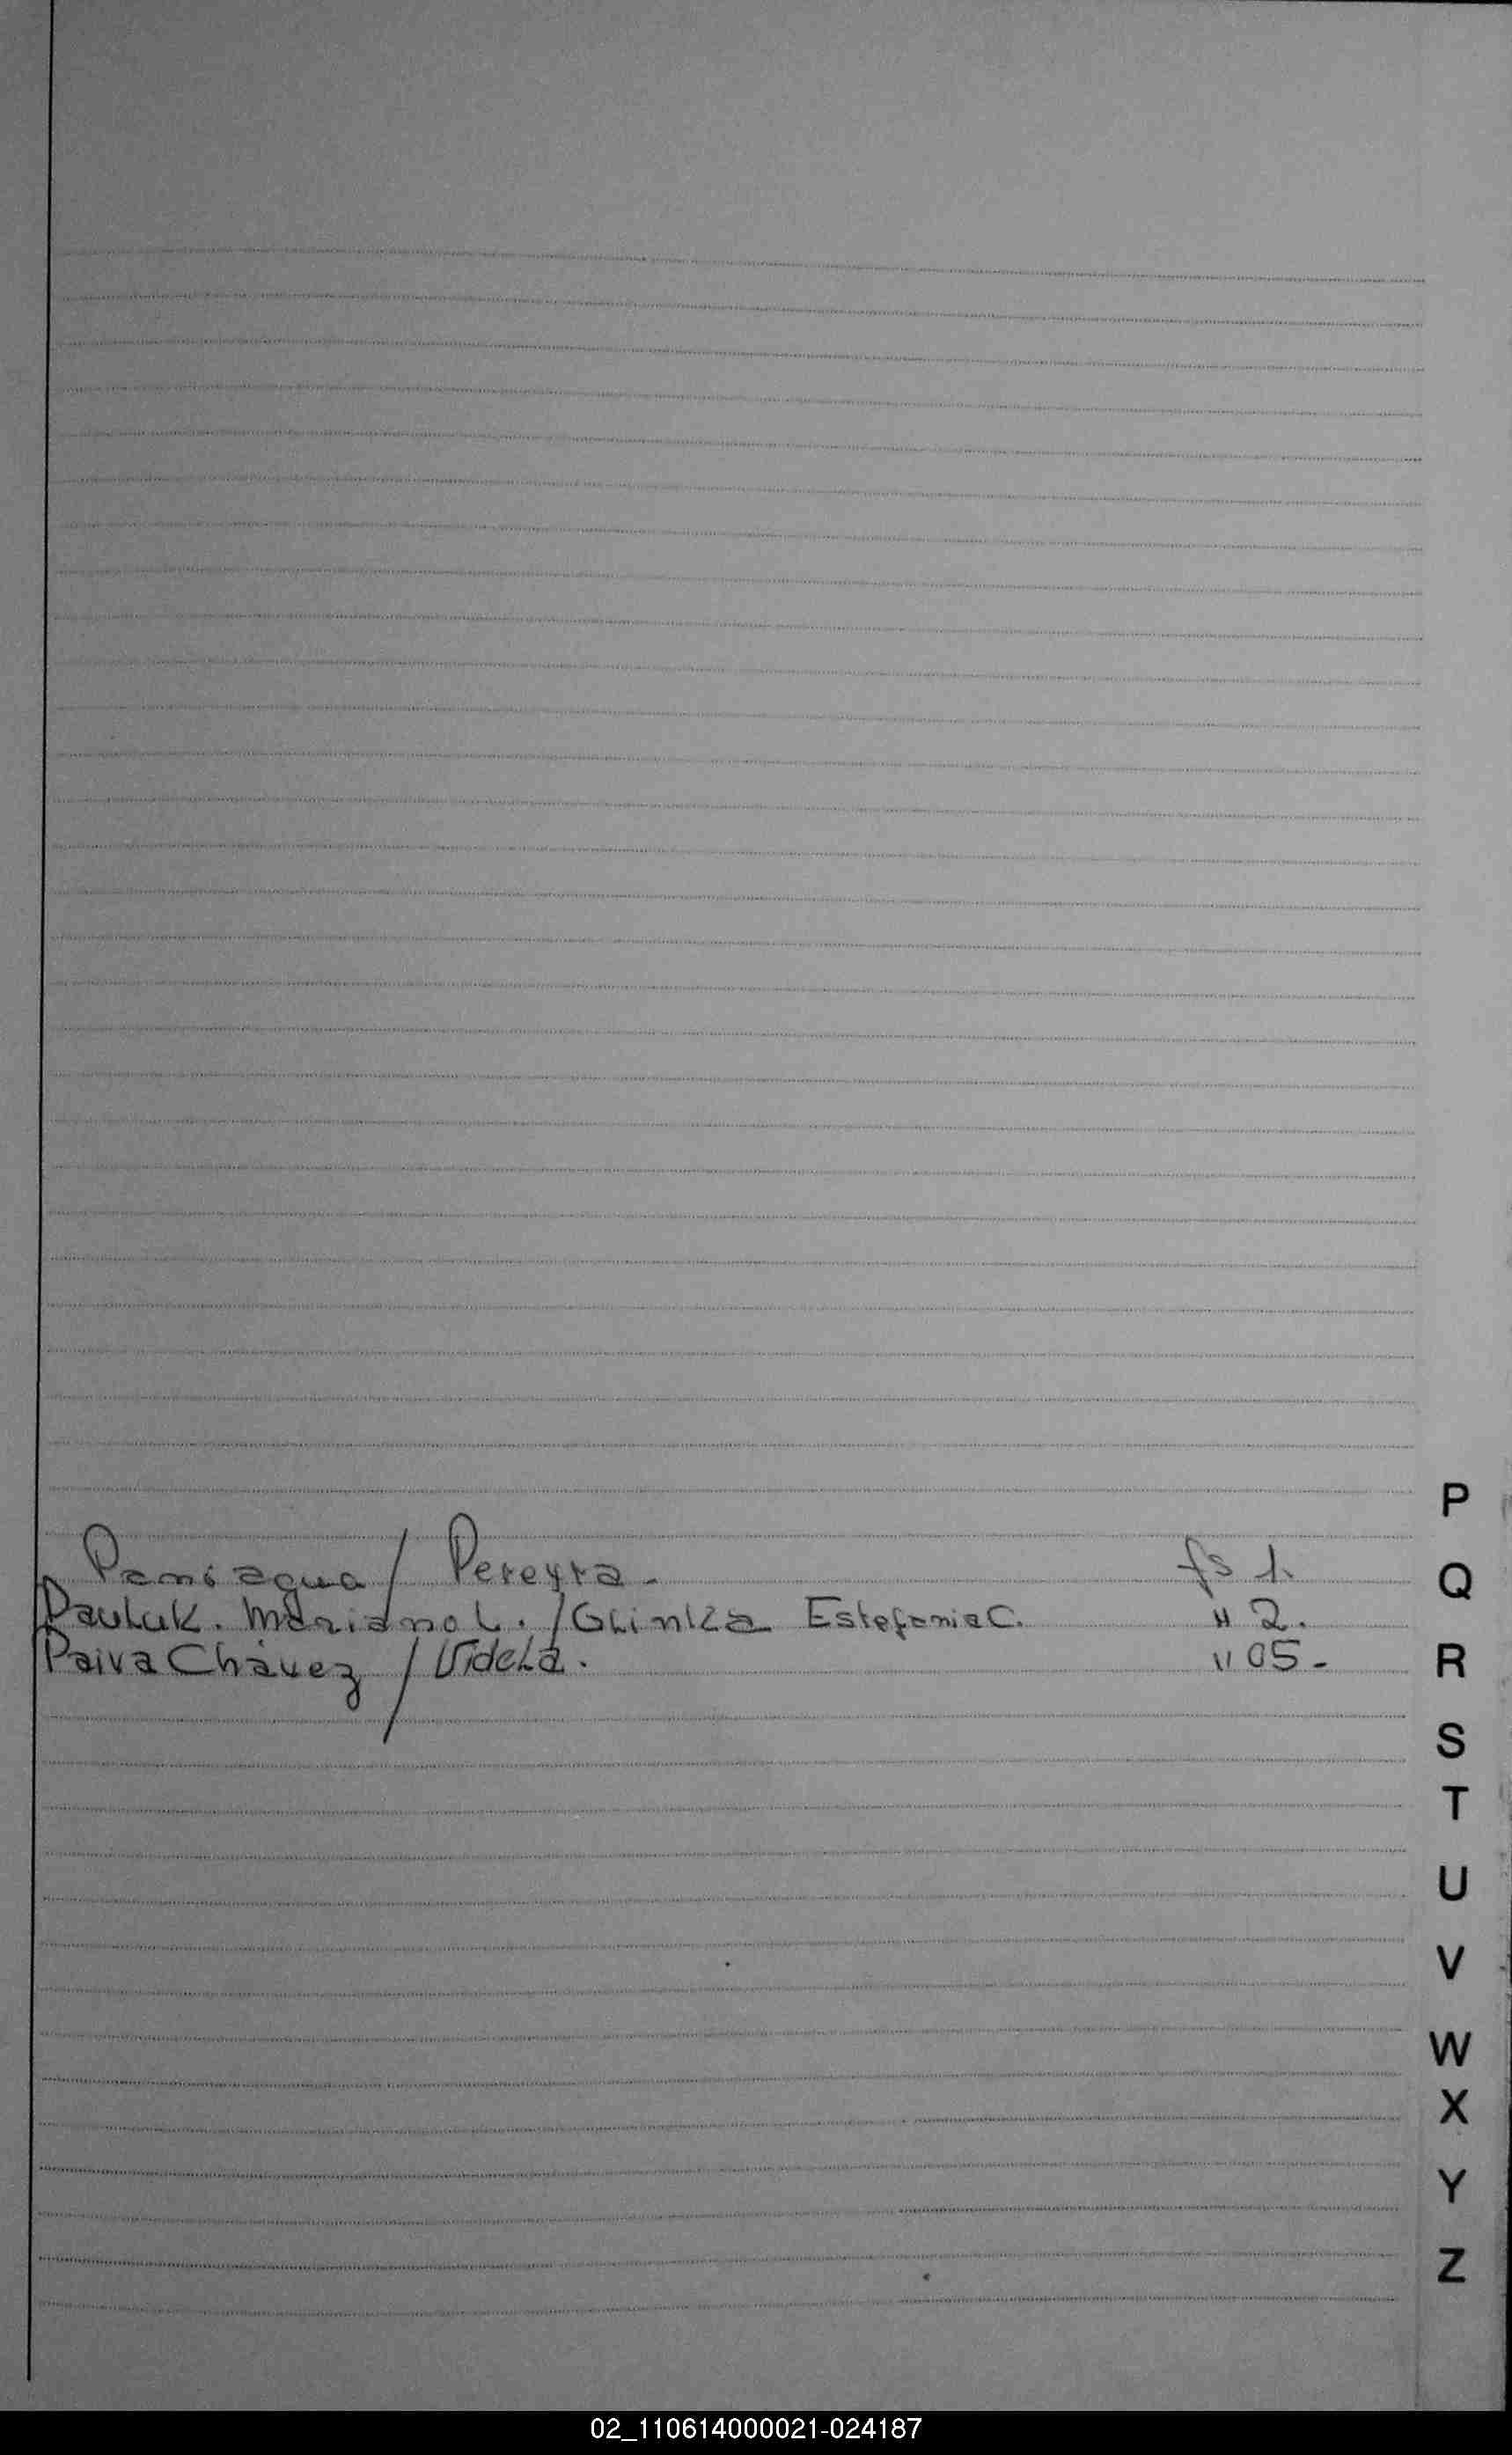 P
Paniagua / Pereyra. fs 1.
Q
Pauluk. Mariano L. / Glinka Estefania C. " 2.
Paiva Chávez / Videla. " 05-
R
S
T
U
V
W
X
Y
Z
02_110614000021-024187